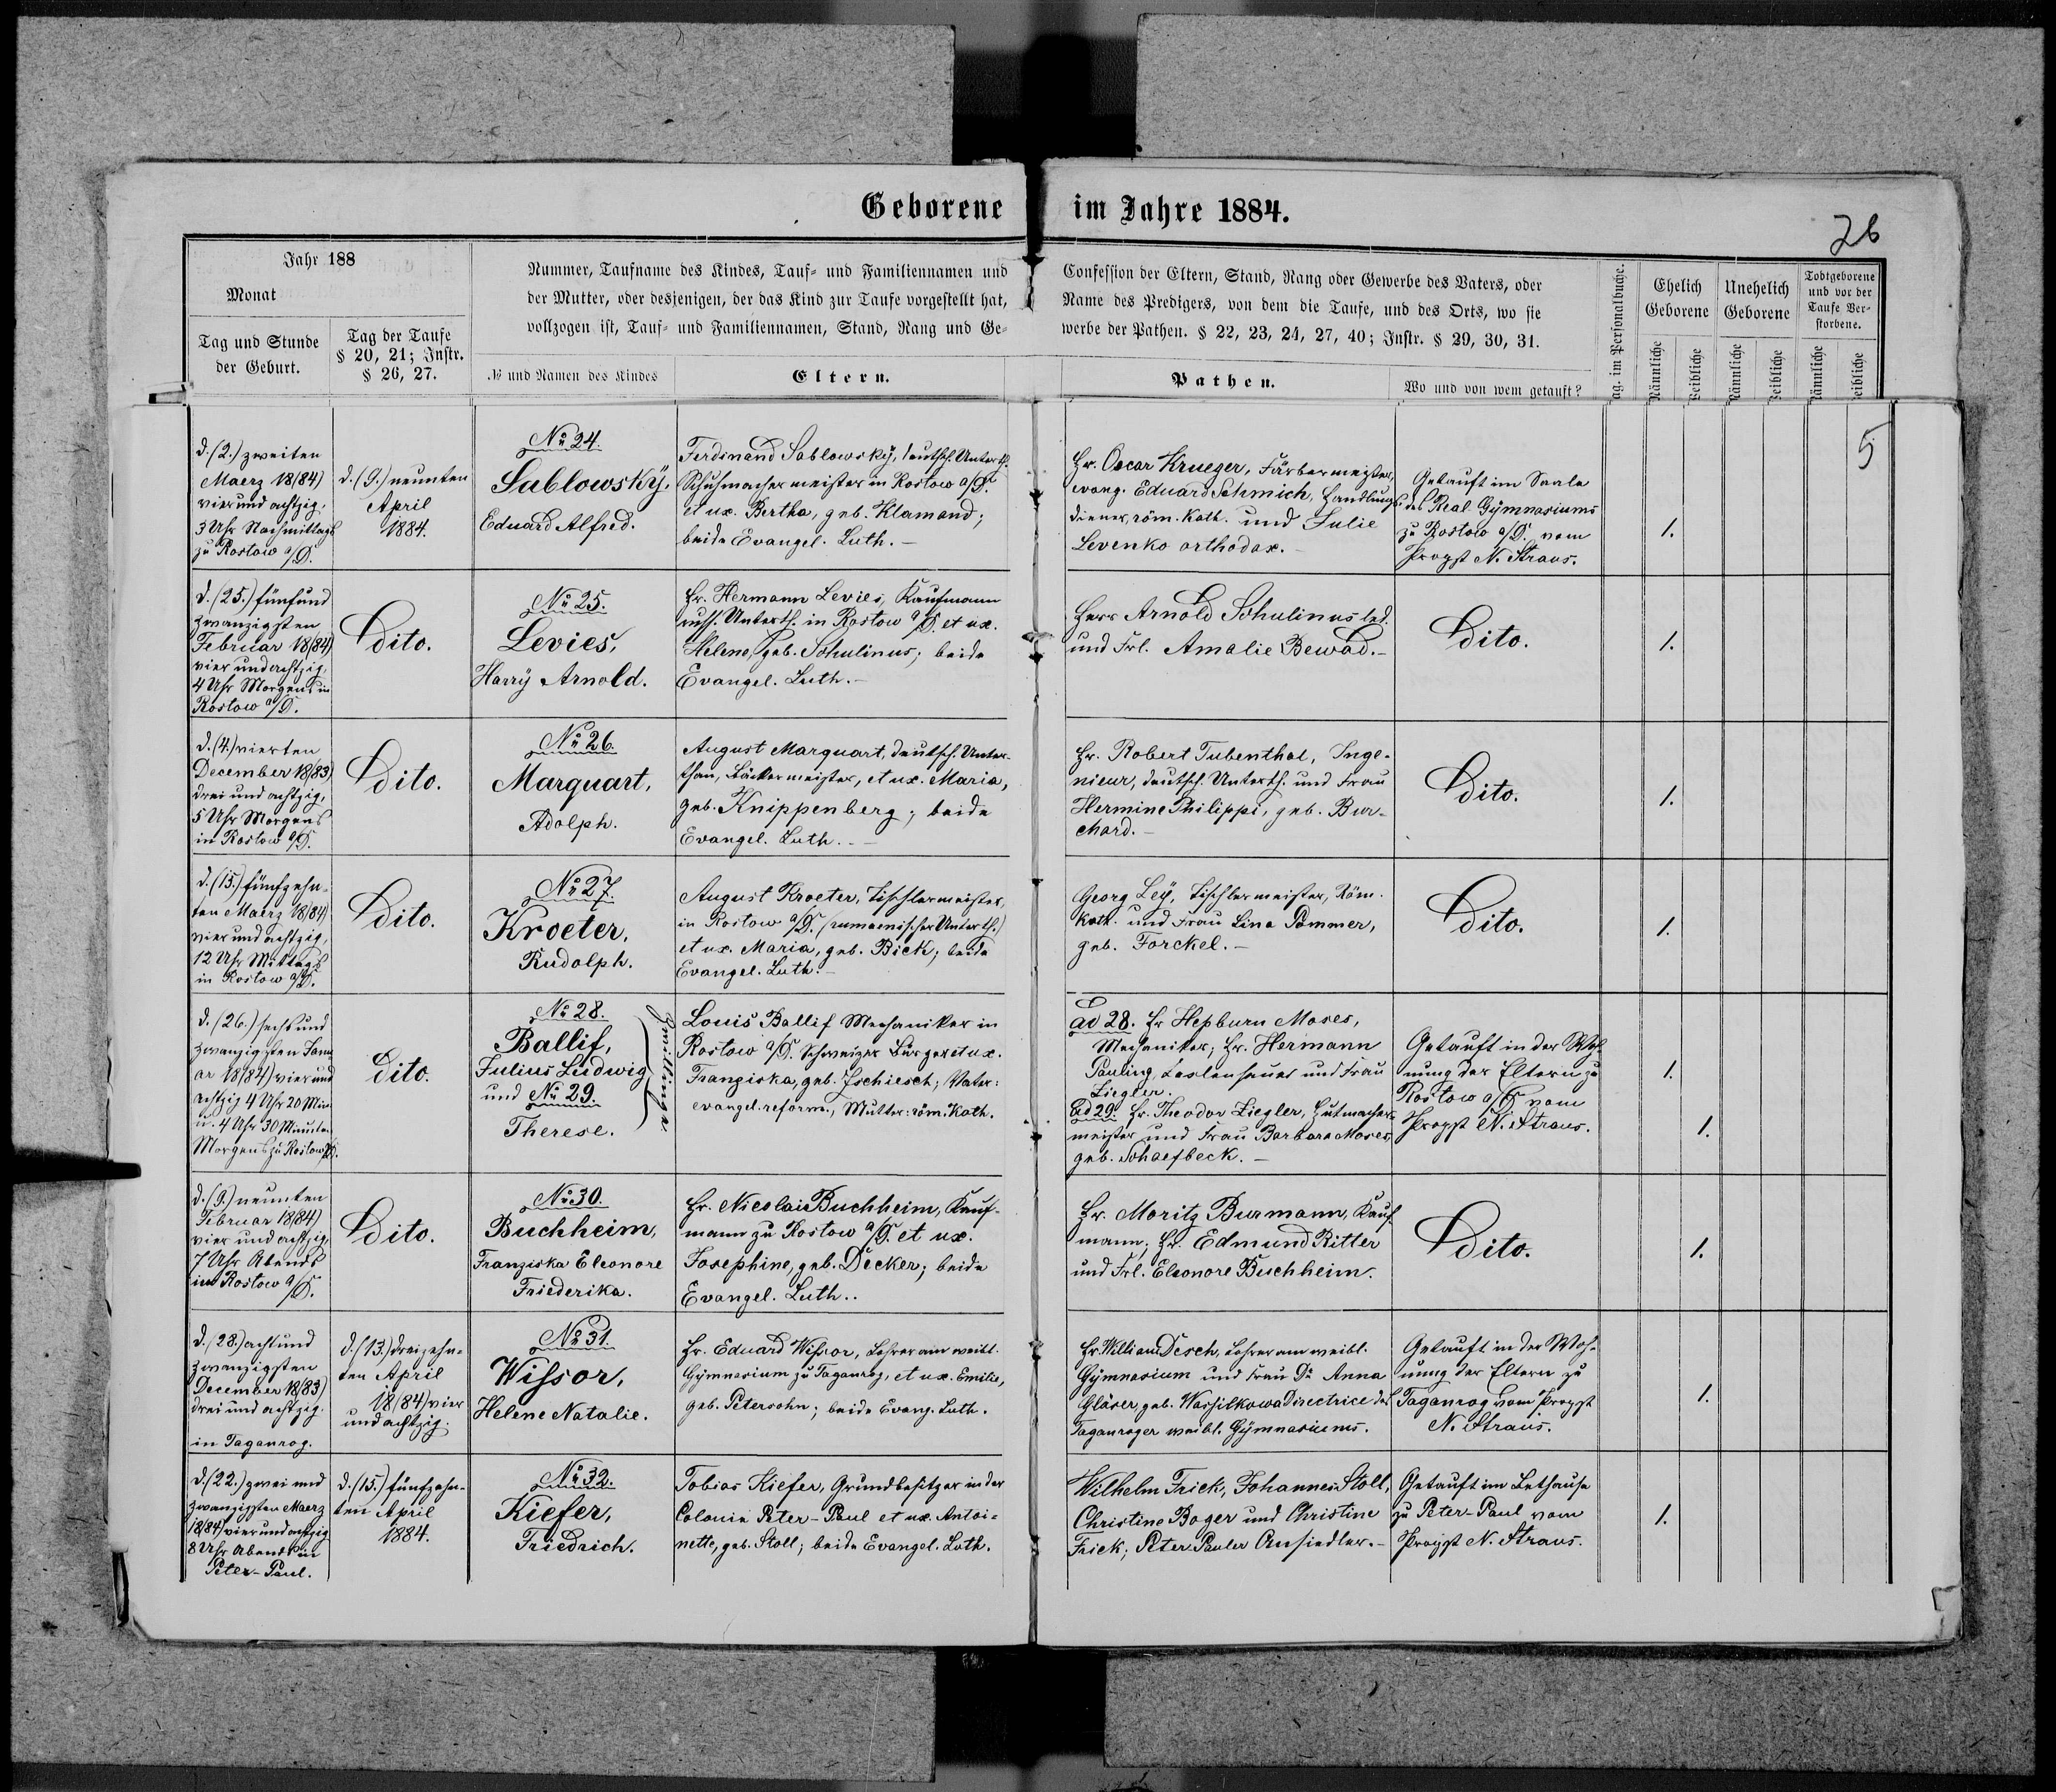 Geborene im Jahre 1884.
26
Jahr 188
Monat
Tag und Stunde
der Geburt.
Tag der Taufe
§ 20, 21; Instr.
§ 26, 27.
Nummer, Taufname des Kindes, Tauf- und Familiennamen und
der Mutter, oder desjenigen, der das Kind zur Taufe vorgestellt hat,
vollzogen ist, Tauf- und Familiennamen, Stand, Rang und Ge-
№ und Namen des Kindes
Eltern.
Confession der Eltern, Stand, Rang oder Gewerbe des Vaters, oder
Name des Predigers, von dem die Taufe, und des Orts, wo sie
werbe der Pathen. § 22, 23, 24, 27, 40; Instr. § 29, 30, 31.
Pathen.
Wo und von wem getauft?
ag. im Personalbuche.
Ehelich
Geborene
Unehelich
Geborene
Todtgeborene
und vor der
Taufe Ver-
storbene.
Männliche
eibliche
Männliche
eibliche
ännliche
eibliche
5
d. (2.) zweiten
Maerz 18(84)
vier und achtzig,
3 Uhr Nachmittags
zu Rostow a/D.
d. (9.) neunten
April
1884.
No 24.
Sablowsky,
Eduard Alfred.
Ferdinand Sablowsky, deutsch. Unterth.
Schuhmachermeister in Rostow a/D.
et ux. Bertha, geb. Klamand;
beide Evangel. Luth. –
Hr. Oscar Krueger, Färbermeister,
evang. Eduard Schmich, Handlungs-
diener, röm. Kath. und Julie
Levenko orthodox. –
Getauft im Saale
des Real Gymnasiums
zu Rostow a/D. vom
Propst N. Straus.
1.
d. (25.) fünfund
zwanzigsten
Februar 18(84)
vier und achtzig,
4 Uhr Morgens in
Rostow a/D.
Dito.
No 25.
Levies,
Harry Arnold.
Hr. Hermann Levies, Kaufmann
russ. Unterth. in Rostow a/D. et ux.
Helene, geb. Schulinus; beide
Evangel. Luth. –
Herr Arnold Schulinus led.
und Frl. Amalie Bewad. –
Dito.
1.
d. (4.) vierten
December 18(83)
drei und achtzig,
5 Uhr Morgens
in Rostow a/D.
Dito.
No 26.
Marquart,
Adolph.
August Marquart, deutsch. Unter-
than, Bäckermeister, et ux. Maria,
geb. Knippenberg; beide
Evangel. Luth. –
Hr. Robert Tubenthal, Inge-
nieur, deutsch. Unterth. und Frau
Hermine Philippi, geb. Bur-
chard. –
Dito.
1.
d. (15.) fünfzehn-
ten Maerz 18(84)
vier und achtzig,
12 Uhr Mittags
in Rostow a/D.
Dito.
No 27.
Kroeter,
Rudolph.
August Kroeter, Tischlermeister,
in Rostow a/D. (rumaenischer Unterth.)
et ux. Maria, geb. Bick; beide
Evangel. Luth. –
Georg Ley, Tischlermeister, Röm.
Kath. und Frau Lina Pommer,
geb. Forckel. –
Dito.
1.
d. (26.) sechs und
zwanzigsten Janu
ar 18(84) vier und
achtzig 4 Uhr 20 Min.
u. 4 Uhr 30 Minuten
Morgens zu Rostow a/D.
Dito.
No 28.
Ballif,
Julius Ludwig
und No 29.
Therese.
Zwillinge
Louis Ballif Mechaniker in
Rostow a/D. Schweizer Bürger et ux.
Franziska, geb. Zschiesch; Vater:
evangel. reform., Mutter: röm. Kath.
ad 28. Hr. Hepburn Moses,
Mechaniker; Hr. Hermann
Pauling, und Frau
Ziegler.
ad 29. Hr. Theodor Ziegler, Hutmacher-
meister und Frau Barbara Moses,
geb. Schaefbeck. –
Getauft in der Woh-
nung der Eltern zu
Rostow a/D vom
Propst N. Straus.
1.
1.
d. (9.) neunten
Februar 18(84)
vier und achtzig,
7 Uhr Abends
in Rostow a/D.
Dito.
No 30.
Buchheim,
Franziska Eleonore
Friederika.
Hr. Nicolai Buchheim, Kauf-
mann zu Rostow a/D. et ux.
Josephine, geb. Decker; beide
Evangel. Luth..
Hr. Moritz Burmann, Kauf
mann; Hr. Edmund Ritter
und Frl. Eleonore Buchheim.
Dito.
1.
d. (28.) acht und
zwanzigsten
December 18(83)
drei und achtzig.
in Taganrog.
d. (13.) dreizehn-
ten April
18(84) vier
und achtzig.
No 31.
Wissor,
Helene Natalie.
Hr. Eduard Wissor, Lehrer am weibl.
Gymnasium zu Taganrog, et ux. Emilie,
geb. Petersohn; beide Evang. Luth.
Hr. William Desch, Lehrer am weibl.
Gymnasium und Frau Dr. Anna
Gläser, geb. Wassilkowa Directrice des
Taganroger weibl. Gymnasiums.
Getauft in der Woh-
nung der Eltern zu
Taganrog vom Propst
N. Straus.
1.
d. (22.) zwei und
zwanzigsten Maerz
18(84) vier und achtzig
8 Uhr Abends in
Peter-Paul.
d. (15.) fünfzehn-
ten April
1884.
No 32.
Kiefer,
Friedrich.
Tobias Kiefer, Grundbesitzer in der
Colonie Peter-Paul et ux. Antoi-
nette, geb. Stoll; beide Evangel. Luth.
Wilhelm Frick, Johannes Stoll,
Christine Boger und Christine
Frick; Peter Pauler Ansiedler. –
Getauft im Bethause
zu Peter-Paul vom
Propst N. Straus.
1.